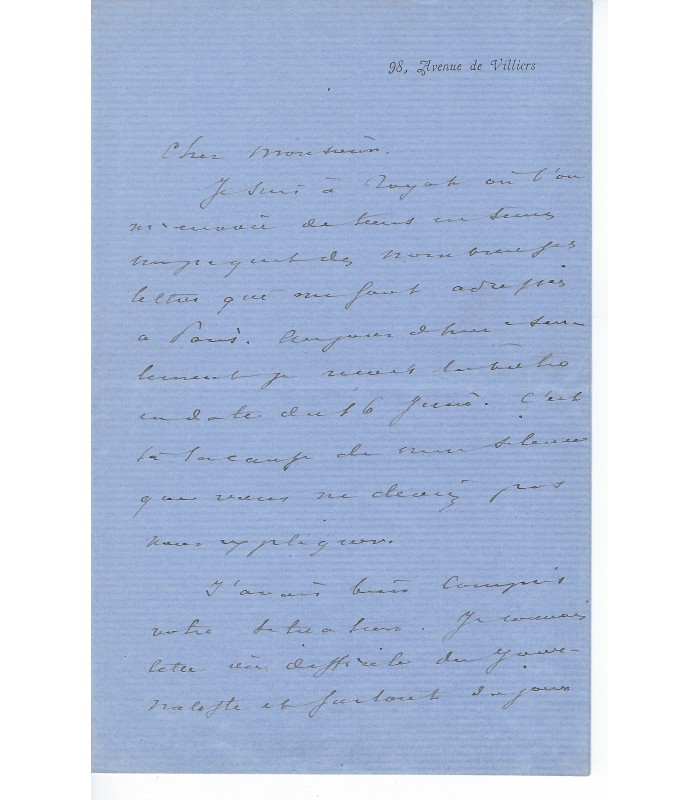 98, Avenue de Villiers
Cher Monsieur.
Je suis à Royat où l'on
m'envoie de temps en temps
un paquet des nombreuses
lettres que me sont adressées
à Paris. Aujourd'hui seu-
lement je reçois la vôtre
en date du 16 Juin. C'est
là la cause de mon silence
que vous ne deviez pas
vous expliquer.
J'avais bien compris
votre situation. Je connais
la vie difficile du Journa-
liste et surtout du jour